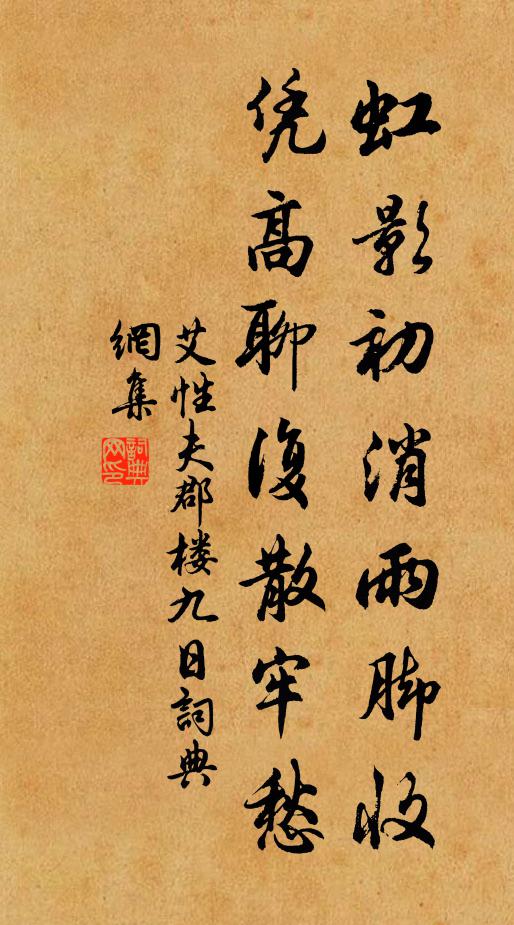 虹影初消雨脚收
凭高聊復散牢愁
艾性夫郡楼九日詞典
網集
詞典
网印